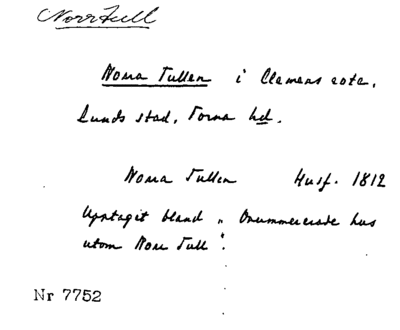 Norrtull
Norra Tullen i Clemens rote,
Lunds stad, Torna hd.
Norra Tullen Husf. 1812
Upptagit bland „Onummererade hus
utom Norr Tull".
Nr 7752